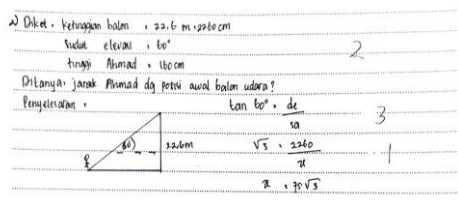 2) Diket. ketinggian balon : 22.6 m : 2260 cm
Sudut elevasi : 60° 2
tinggi Ahmad : 160 cm
Ditanya: jarak Ahmad dg posisi awal balon udara?
Penyelesaian : tan 60° : de/sa 3
60° 22.6m √3 : 2260/x 1
x : 75√3